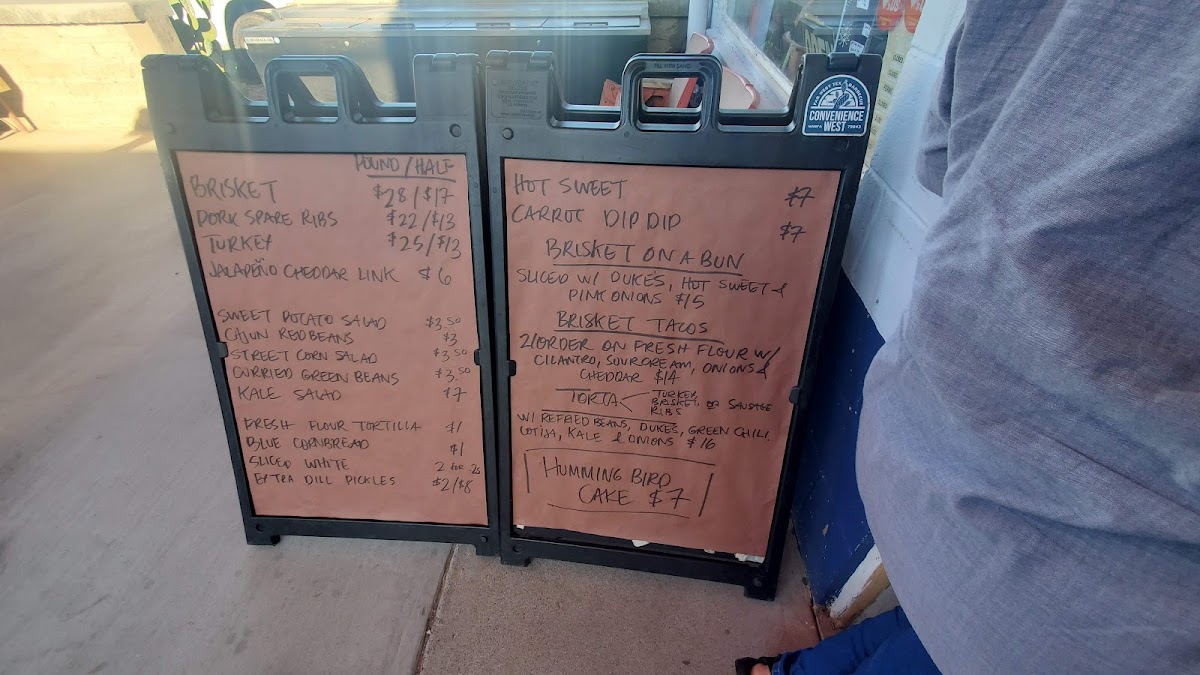 POUND/HALF
BRISKET $28/$17
PORK SPARE RIBS $22/$13
TURKEY $25/$13
JALAPEÑO CHEDDAR LINK $6
SWEET POTATO SALAD $3.50
CAJUN RED BEANS $3
STREET CORN SALAD $3.50
CURRIED GREEN BEANS $3.50
KALE SALAD $7
FRESH FLOUR TORTILLA $1
BLUE CORNBREAD $1
SLICED WHITE 2 for .25
EXTRA DILL PICKLES $2/$8
FAR WEST TEX BARBECUE
CONVENIENCE
WEST
MARFA 79843
HOT SWEET $7
CARROT DIP DIP $7
BRISKET ON A BUN
SLICED W/ DUKE'S, HOT SWEET &
PINK ONIONS $15
BRISKET TACOS
2/ORDER ON FRESH FLOUR W/
CILANTRO, SOUR CREAM, ONIONS &
CHEDDAR $14
TORTA < TURKEY, BRISKET, RIBS OR SAUSAGE
W/ REFRIED BEANS, DUKES, GREEN CHILI,
COTIJA, KALE & ONIONS $16
HUMMING BIRD
CAKE $7